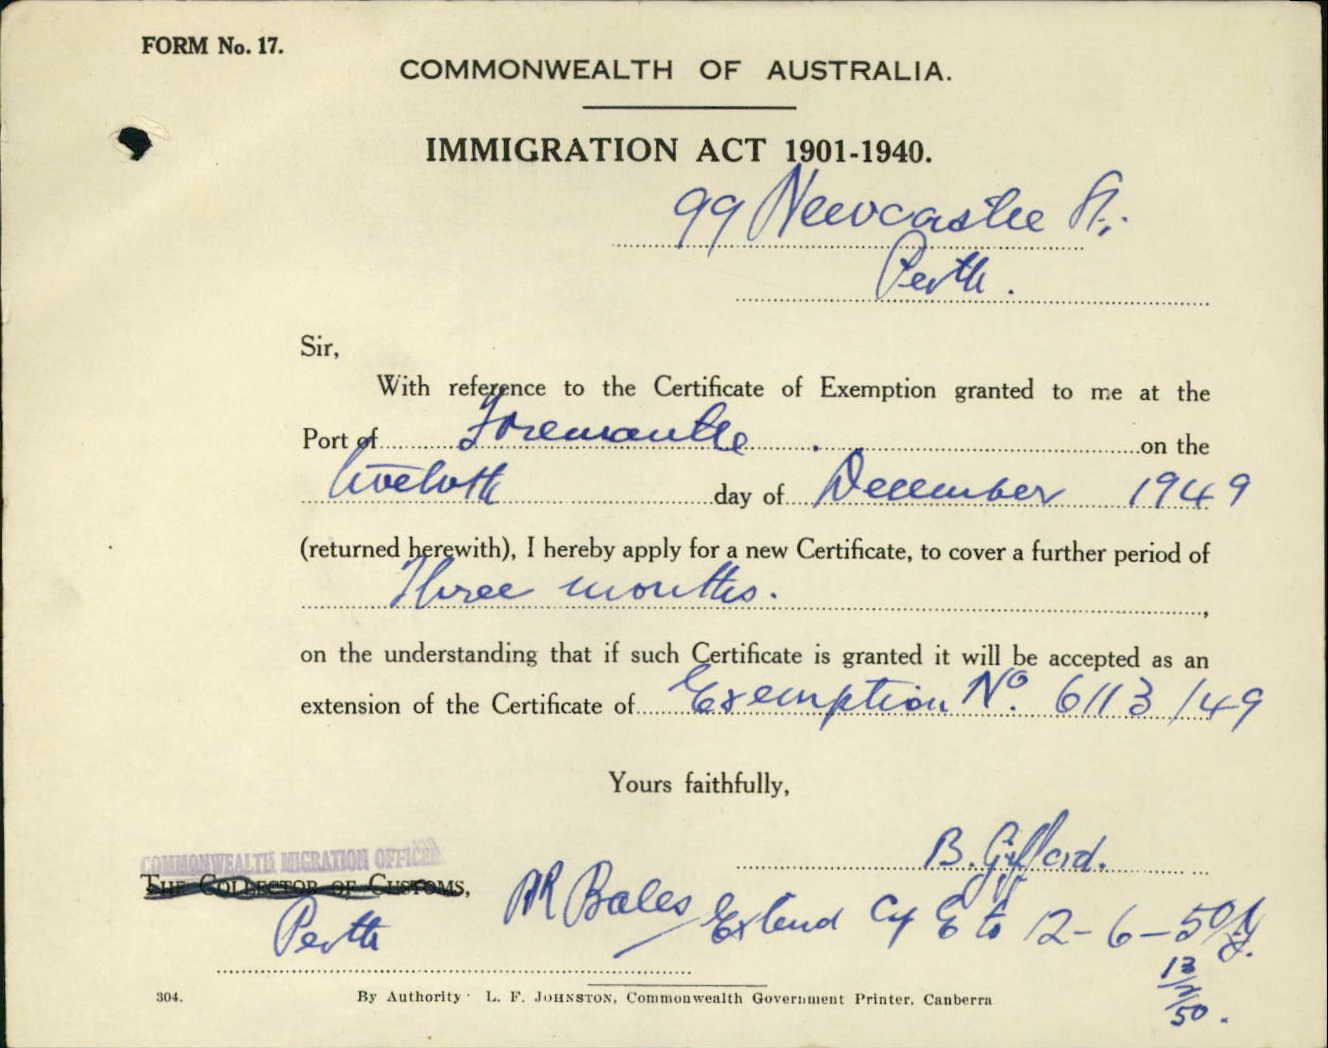 FORM No. 17.
COMMONWEALTH OF AUSTRALIA.
IMMIGRATION ACT 1901-1940.
99 Newcastle St.,
Perth.
Sir,
With reference to the Certificate of Exemption granted to me at the
Port of Fremantle on the
twelvth day of December 1949
(returned herewith), I hereby apply for a new Certificate, to cover a further period of
Three months.,
on the understanding that if such Certificate is granted it will be accepted as an
extension of the Certificate of Exemption No. 6113/49
Yours faithfully,
B. Gifford.
COMMONWEALTH MIGRATION OFFICER
THE COLLECTOR OF CUSTOMS,
Perth
Bales Extend C of E to 12-6-50
13/2/50.
304.
By Authority: L. F. JOHNSTON, Commonwealth Government Printer, Canberra